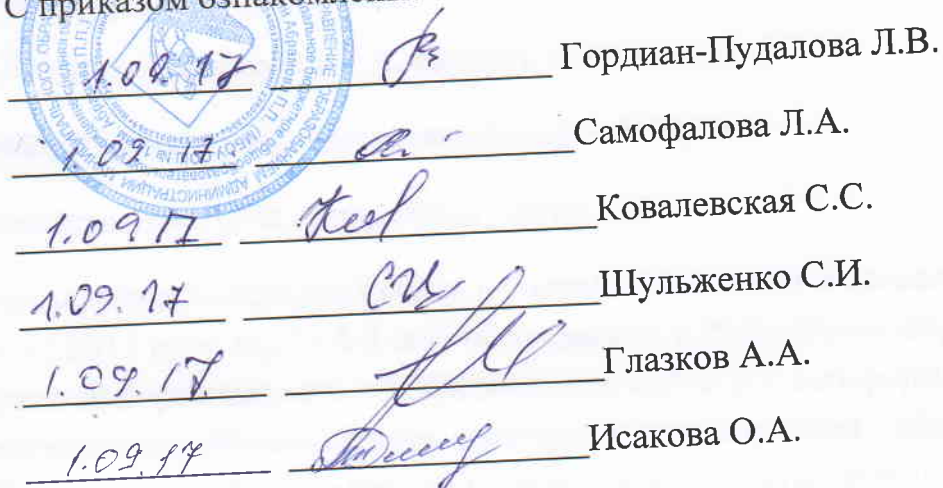 С приказом ознакомлены
1.09.17 Гордиан-Пудалова Л.В.
1.09.17 Самофалова Л.А.
1.09.17 Ковалевская С.С.
1.09.17 Шульженко С.И.
1.09.17. Глазков А.А.
1.09.17 Исакова О.А.